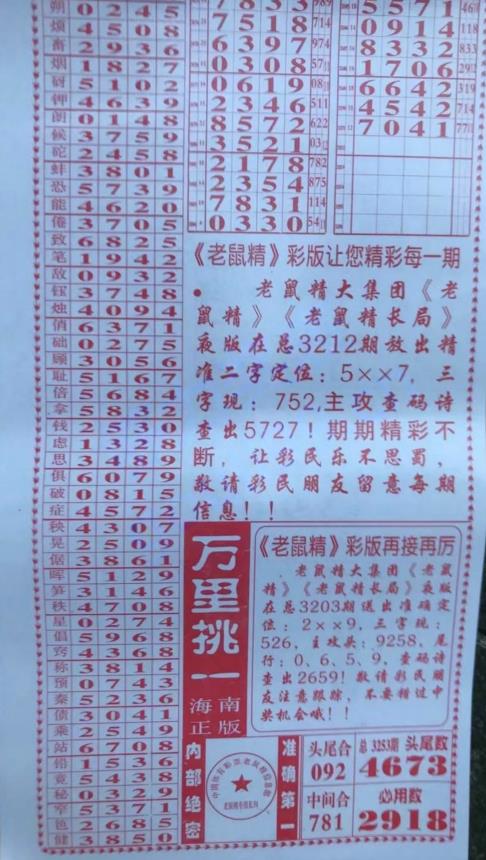 朔 0 2 4 5
煩 4 5 0 8
畜 2 9 3 6
烟 1 8 2 7
5 1 0 2
钾 4 6 3 9
朗 0 1 4 8
候 3 7 5 9
砣 2 4 5 8
蚌 3 8 0 1
恐 5 7 3 9
能 4 6 2 0
倦 3 7 0 5
致 6 8 2 5
笔 1 9 4 2
敌 0 9 3 2
钰 3 7 4 8
烛 4 0 9 4
俏 6 3 7 1
础 0 2 7 5
顾 3 0 5 6
耻 5 1 6 7
倍 5 6 8 4
拿 5 8 3 2
钱 2 5 3 0
虑 1 3 2 8
思 3 4 8 9
俱 6 0 7 9
破 0 8 1 5
症 4 5 7 2
秧 4 3 0 7
晃 2 5 0 9
倨 3 8 6 1
晖 5 1 2 9
笋 3 1 4 6
秩 4 7 0 8
星 0 2 7 4
倡 5 9 6 8
窍 4 3 6 8
称 3 8 1 4
预 0 7 4 3
秦 5 2 3 6
债 3 0 4 1
乘 2 5 4 9
站 6 7 0 8
铅 1 5 3 6
竟 5 4 3 8
秘 0 3 2 9
窄 5 3 7 1
色 2 6 8 5
健 3 8 5 0
7 8 3 3
7 5 1 8 714
6 3 9 7 974
0 3 0 8
0 6 1 9
2 3 4 6 511
8 5 7 2 622
3 5 2 1
2 1 7 8 782
2 3 5 4 875
7 8 3 1 114
0 3 3 0
5 5 7 1
0 9 1 4
8 3 3 2
1 7 0 6
6 6 4 2
4 5 4 2
7 0 4 1
《老鼠精》彩版让您精彩每一期
● 老鼠精大集团《老
鼠精》《老鼠精长局》
夜版在总3212期放出精
准二字定位：5××7，三
字现：752,主攻查码诗
查出5727！期期精彩不
断，让彩民乐不思蜀，
敬请彩民朋友留意每期
信息！！
万里挑一
海南
正版
《老鼠精》彩版再接再厉
老鼠精大集团《老鼠
精》《老鼠精长局》夜版
在总3203期送出准确定
位：2××9，三字现：
526，主攻头：9258，尾
行：0、6、5、9，查码诗
查出2659！敬请彩民朋
友注意跟踪，不要错过中
奖机会哦！！
内部绝密
准确第一
头尾合
092
总3253期 头尾数
4673
中间合
781
必用数
2918